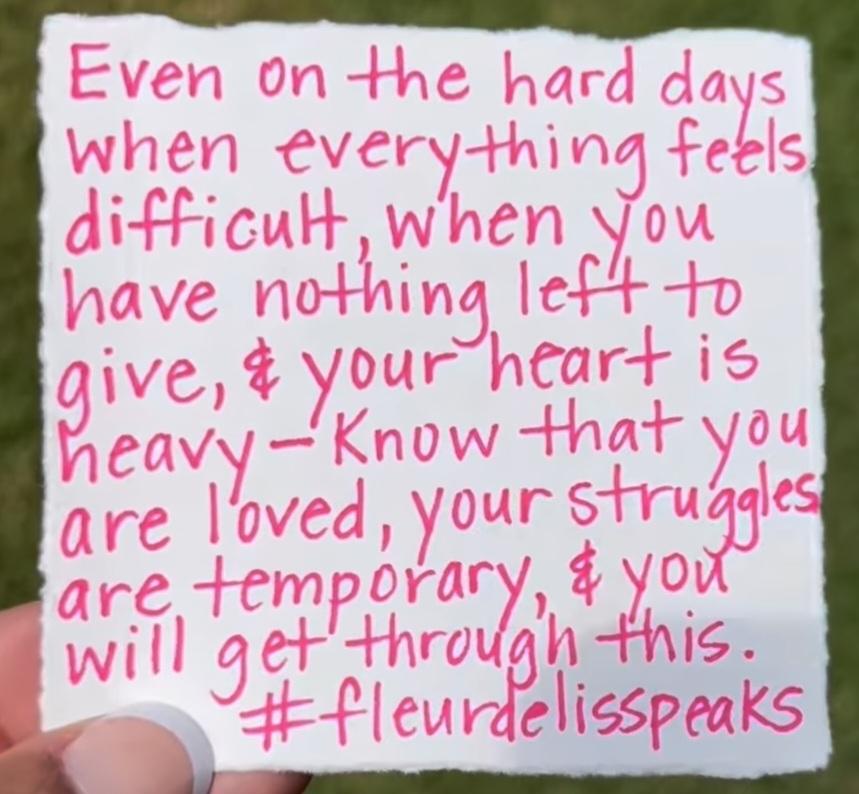 Even on the hard days
when everything feels
difficult, when you
have nothing left to
give, & your heart is
heavy-Know that you
are loved, your struggles
are temporary, & you
will get through this.
#fleurdelisspeaks